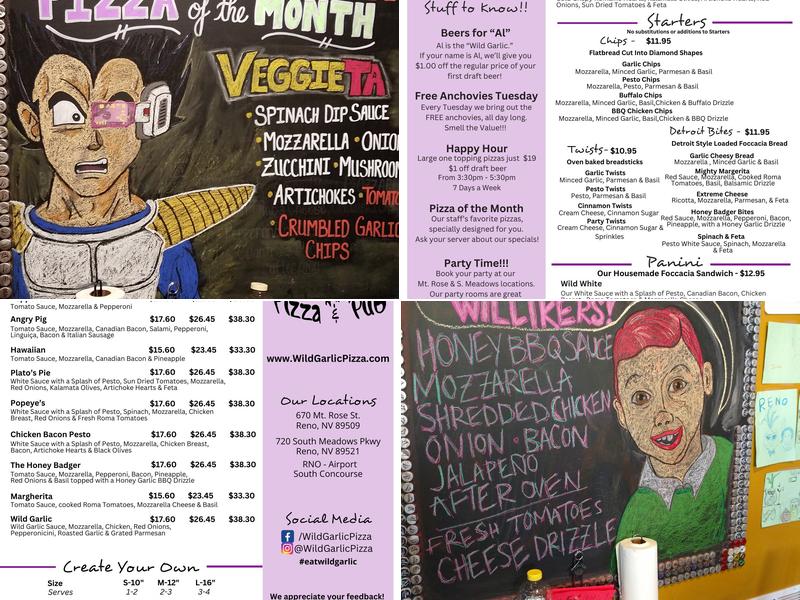 PIZZA of the MONTH
VEGGIETA
• SPINACH DIP SAUCE
• MOZZARELLA • ONION
• ZUCCHINI • MUSHROOM
• ARTICHOKES • TOMATO
• CRUMBLED GARLIC
CHIPS
Stuff to Know!!
Beers for "Al"
Al is the "Wild Garlic."
If your name is Al, we'll give you
$1.00 off the regular price of your
first draft beer!
Free Anchovies Tuesday
Every Tuesday we bring out the
FREE anchovies, all day long.
Smell the Value!!!
Happy Hour
Large one topping pizzas just $19
$1 off draft beer
From 3:30pm - 5:30pm
7 Days a Week
Pizza of the Month
Our staff's favorite pizzas,
specially designed for you.
Ask your server about our specials!
Party Time!!!
Book your party at our
Mt. Rose & S. Meadows locations.
Our party rooms are great
Onions, Sun Dried Tomatoes & Feta
Starters
No substitutions or additions to Starters
Chips - $11.95
Flatbread Cut Into Diamond Shapes
Garlic Chips
Mozzarella, Minced Garlic, Parmesan & Basil
Pesto Chips
Mozzarella, Pesto, Parmesan & Basil
Buffalo Chips
Mozzarella, Minced Garlic, Basil,Chicken & Buffalo Drizzle
BBQ Chicken Chips
Mozzarella, Minced Garlic, Basil,Chicken & BBQ Drizzle
Twists- $10.95
Oven baked breadsticks
Garlic Twists
Minced Garlic, Parmesan & Basil
Pesto Twists
Pesto, Parmesan & Basil
Cinnamon Twists
Cream Cheese, Cinnamon Sugar
Party Twists
Cream Cheese, Cinnamon Sugar &
Sprinkles
Detroit Bites - $11.95
Detroit Style Loaded Foccacia Bread
Garlic Cheesy Bread
Mozzarella , Minced Garlic & Basil
Mighty Margerita
Red Sauce, Mozzarella, Cooked Roma
Tomatoes, Basil, Balsamic Drizzle
Extreme Cheese
Ricotta, Mozzarella, Parmesan, & Feta
Honey Badger Bites
Red Sauce, Mozzarella, Pepperoni, Bacon,
Pineapple, with a Honey Garlic Drizzle
Spinach & Feta
Pesto White Sauce, Spinach, Mozzarella
& Feta
Panini
Our Housemade Foccacia Sandwich - $12.95
Wild White
Our White Sauce with a Splash of Pesto, Canadian Bacon, Chicken
Tomato Sauce, Mozzarella & Pepperoni
Angry Pig $17.60 $26.45 $38.30
Tomato Sauce, Mozzarella, Canadian Bacon, Salami, Pepperoni,
Linguiça, Bacon & Italian Sausage
Hawaiian $15.60 $23.45 $33.30
Tomato Sauce, Mozzarella, Canadian Bacon & Pineapple
Plato's Pie $17.60 $26.45 $38.30
White Sauce with a Splash of Pesto, Sun Dried Tomatoes, Mozzarella,
Red Onions, Kalamata Olives, Artichoke Hearts & Feta
Popeye's $17.60 $26.45 $38.30
White Sauce with a Splash of Pesto, Spinach, Mozzarella, Chicken
Breast, Red Onions & Fresh Roma Tomatoes
Chicken Bacon Pesto $17.60 $26.45 $38.30
White Sauce with a Splash of Pesto, Mozzarella, Chicken Breast,
Bacon, Artichoke Hearts & Black Olives
The Honey Badger $17.60 $26.45 $38.30
Tomato Sauce, Mozzarella, Pepperoni, Bacon, Pineapple,
Red Onions & Basil topped with a Honey Garlic BBQ Drizzle
Margherita $15.60 $23.45 $33.30
Tomato Sauce, cooked Roma Tomatoes, Mozzarella Cheese & Basil
Wild Garlic $17.60 $26.45 $38.30
Wild Garlic Sauce, Mozzarella, Chicken, Red Onions,
Pepperonicini, Roasted Garlic & Grated Parmesan
Create Your Own
Size S-10" M-12" L-16"
Serves 1-2 2-3 3-4
Pizza & Pub
www.WildGarlicPizza.com
Our Locations
670 Mt. Rose St.
Reno, NV 89509
720 South Meadows Pkwy
Reno, NV 89521
RNO - Airport
South Concourse
Social Media
/WildGarlicPizza
@WildGarlicPizza
#eatwildgarlic
We appreciate your feedback!
WILLIKERS!
HONEY BBQ SAUCE
MOZZARELLA
SHREDDED CHICKEN
ONION · BACON
JALAPEÑO
AFTER OVEN
FRESH TOMATOES
CHEESE DRIZZLE
RENO